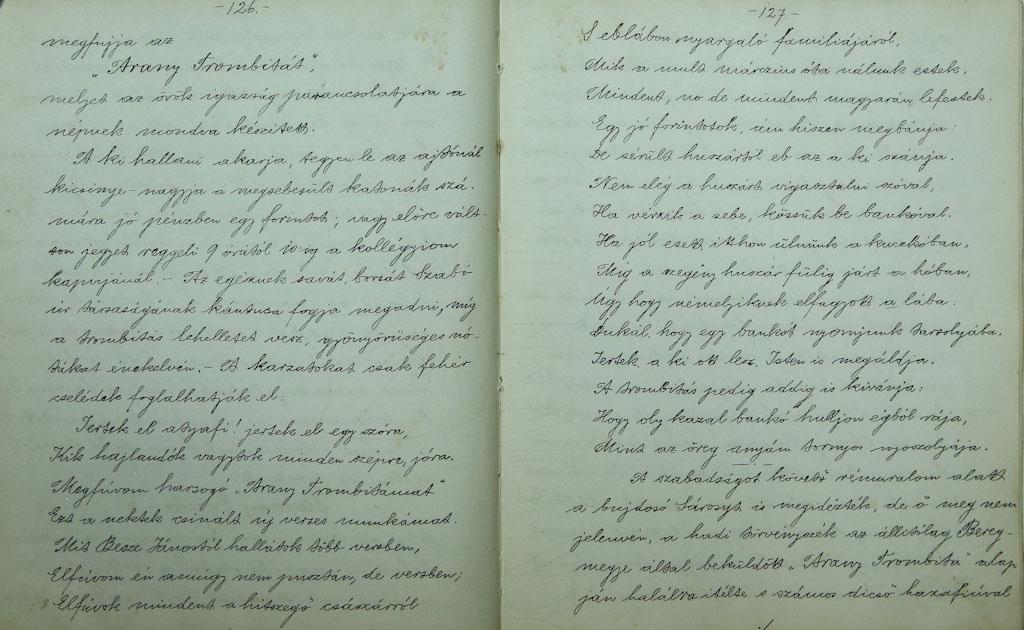 -126.-
megfujja az
„Arany Trombitát”,
melyet az örök igazság parancsolatjára a
népnek mondva készitett.
A ki hallani akarja, tegyen le az ajtónál
kicsinye-nagyja a megsebesült katonák szá-
mára jó pénzben egy forintot; vagy előre vált-
son jegyet reggeli 9 órától 10-ig a kollégyiom
kapujánál. - Az egésznek savát, borsát Szabó
úr társaságának kántusa fogja megadni, míg
a trombitás lehelletet vesz, gyönyörüséges nó-
tákat énekelvén. - A karzatokat csak fehér
cselédek foglalhatják el:
Jertek el atyafi! jertek el egy szóra,
Kik hajlandók vagytok minden szépre, jóra.
Megfúvom harsogó „Arany Trombitámat”
Ezt a nektek csinált új verses munkámat.
Mit Besze Jánostól hallátok több versben,
Elfúvom én amúgy nem pusztán, de versben;
Elfúvok mindent a hitszegő császárról
-127-
S eblábon nyargaló familiájáról,
Mik a mult márczius óta nálunk estek,
Mindent, no de mindent magyarán lefestek.
Egy jó forintotok, úm hiszen megbánja:
De sérült huszártól eb az a ki szánja.
Nem elég a huszárt vigasztalni szóval,
Ha vérzik a sebe, kössük be bankóval.
Ha jól esett itthon ülnünk a kuczkóban,
Míg a szegény huszár fülig járt a hóban,
Úgy hogy némelyiknek elfagyott a lába:
Dukál, hogy egy bankót nyomjunk tarsolyába.
Jertek, a ki ott lesz, Isten is megáldja.
A trombitás pedig addig is kivánja:
Hogy oly kazal bankó hulljon égből rája,
Mint az öreg anyám tornyos nyoszolyája.
A szabadságot követő rémuralom alatt
a bujdosó Sárosyt is megidézték, de ő meg nem
jelenvén, a hadi törvényszék az állitólag Bereg-
megye által beküldött „Arany Trombita” alap
ján halálra itélte s számos dicső hazafiúval